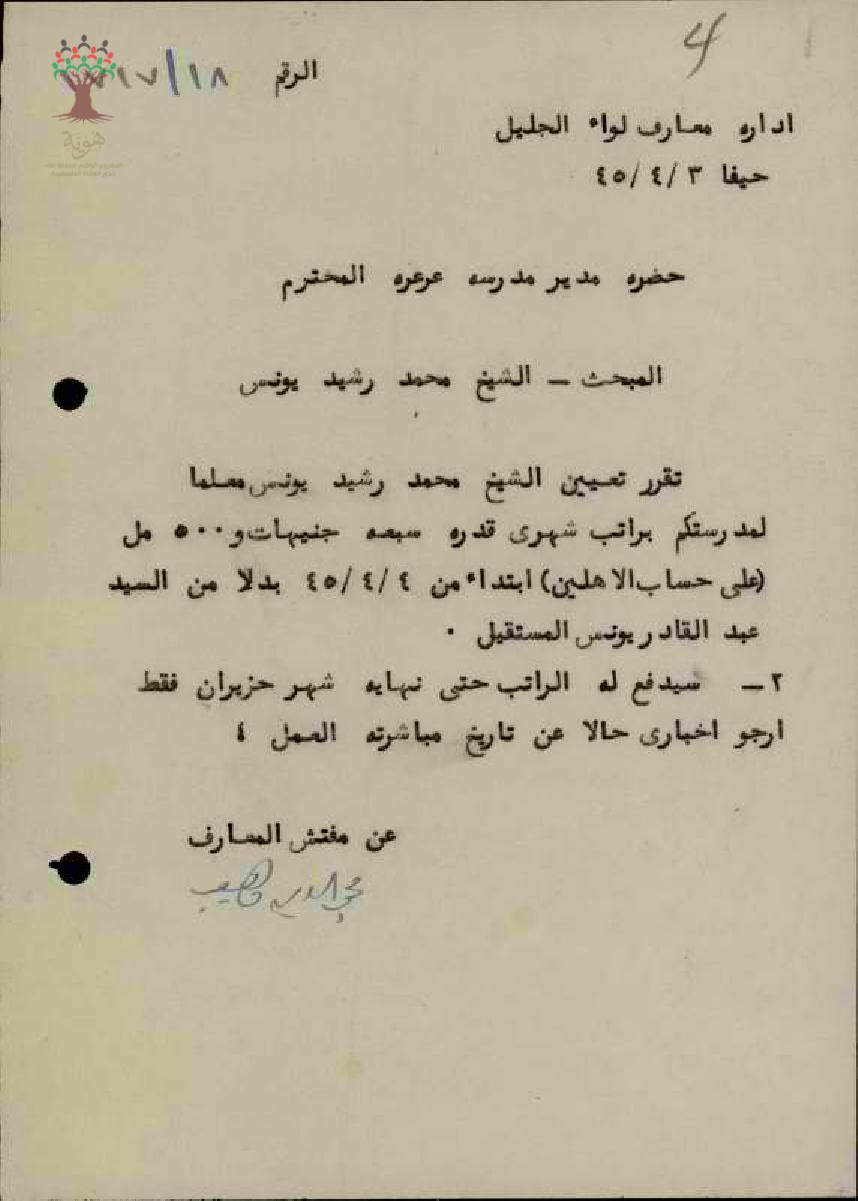 4
الرقم ١٨/
هوية
اداره معارف لواء الجليل
حيفا ٣ /٤ /٤٥
حضره مدير مدرسه عرعره المحترم
المبحث — الشيخ محمد رشيد يونس
تقرر تعيين الشيخ محمد رشيد يونس معلما
لمدرستكم براتب شهرى قدره سبعه جنيهات و ٥٠٠ مل
(على حساب الاهلين) ابتداء من ٤ /٤ /٤٥ بدلا من السيد
عبد القادر يونس المستقيل ٠
٢— سيدفع له الراتب حتى نهايه شهر حزيران فقط
ارجو اخبارى حالا عن تاريخ مباشرته العمل ٤
عن مفتش المعارف